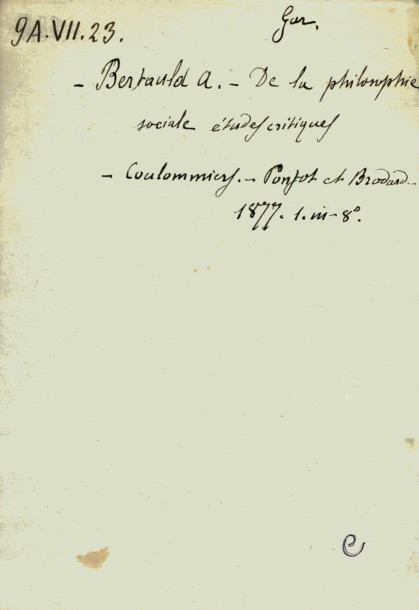 9A.VII.23.
Gar.
- Bertauld A. - De la philosophie
sociale études critiques
- Coulommiers. - Ponsot et Brodard. -
1877. 1. in-8°.
C